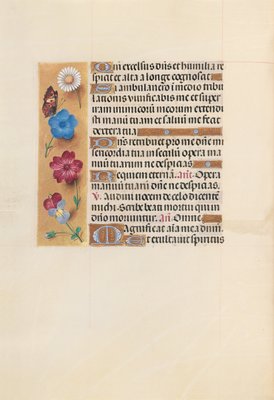 Qm excelsus dñs et humilia re
spicit et alta a longe cognoscit
Si ambulavero in medio tribu
lationis vivificabis me et super
iram inimicorū meorum extendi
sti manū tuam et salvū me fecit
dextera tua
Dñs retribuet pro me dñe mi
sericordia tua in seculū opera ma
nuū tuarum ne despicias
Requiem eternā. Añ. Opera
manuū tuarū dñe ne despicias.
V. Audivi vocem de celo dicentē
michi Scribe beati mortui qui in
dño moriuntur. Añ. Omne
Magnificat aīa mea dñm
Et exultavit spiritus